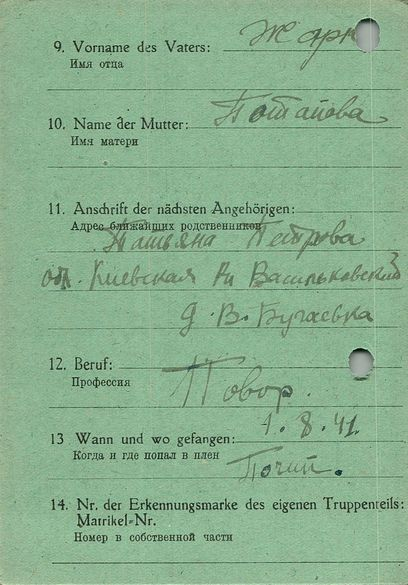 9. Vorname des Vaters:
Имя отца
10. Name der Mutter: Потапова
Имя матери
11. Anschrift der nächsten Angehörigen:
Адрес ближайших родственников
Татьяна Петрова
обл. Киевская Васильковский
д. В. Бугаевка
12. Beruf:
Профессия
Повор.
13 Wann und wo gefangen: 1.8.41
Когда и где попал в плен
14. Nr. der Erkennungsmarke des eigenen Truppenteils:
Matrikel-Nr.
Номер в собственной части